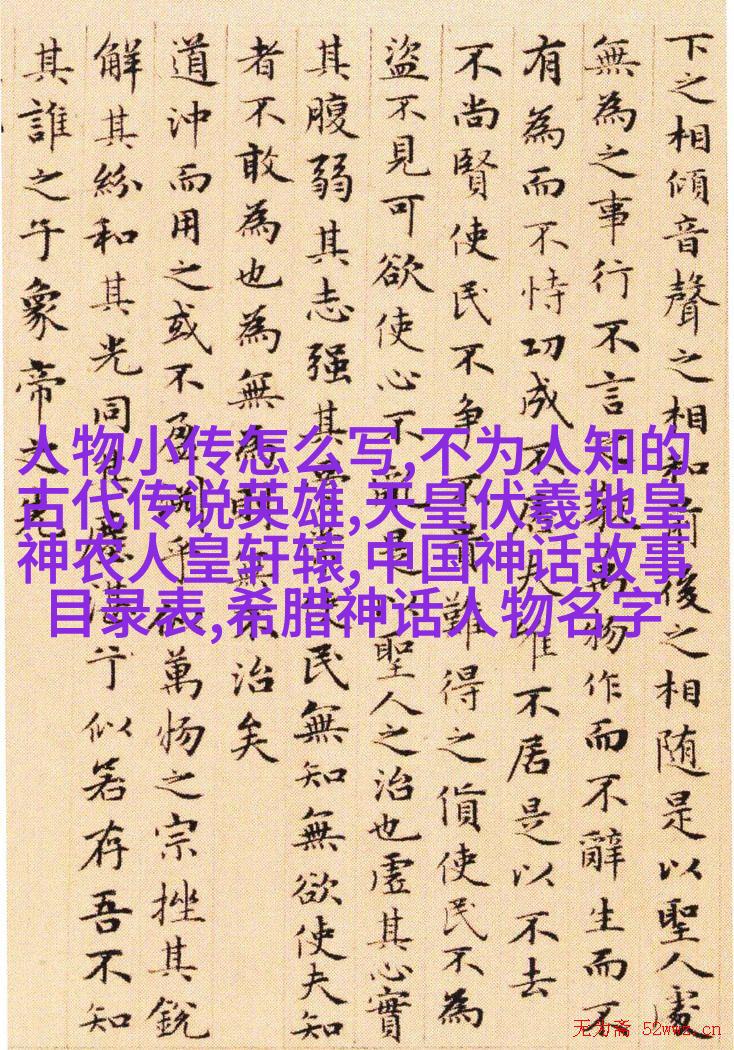 下之相傾音聲之相和前後之相随是以聖人處
無為之事行不言之教萬物作而不辭生而不
有為而不恃功成不居夫唯不居是以不去
不尚賢使民不争不貴難得之貨使民不為
盜不見可欲使心不亂是以聖人之治也虛其心實
其腹弱其志强其骨常使民無知無欲使夫知
者不敢為也為無為則無不治矣
道沖而用之或不盈淵乎似萬物之宗挫其銳
解其紛和其光同其塵湛兮似若存吾不知
其誰之子象帝之先
人物小传怎么写,不为人知的
古代传说英雄,天皇伏羲地皇
神农人皇轩辕,中国神话故事
目录表,希腊神话人物名字
无为斋 52wwz.cn